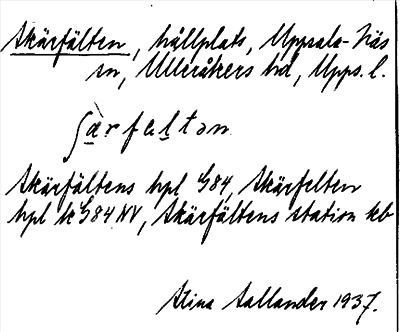 Skärfälten, hållplats, Uppsala-Näs
sn, Ulleråkers hd, Upps. l.
ʃàrfeltən
Skärfältens hpl G84, Skärfelten
hpl k G84 NV, Skärfältens station kb
Stina Sallander 1937.